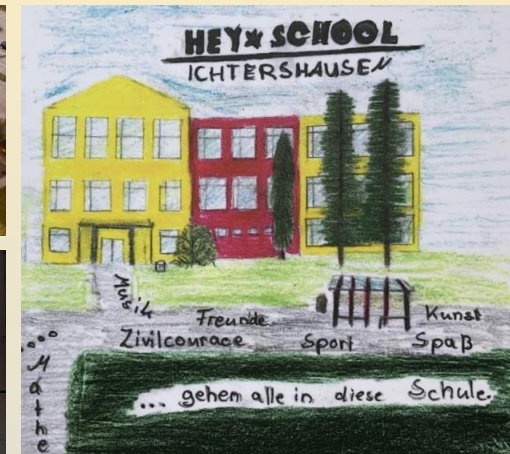 HEY★SCHOOL
ICHTERSHAUSEN
Musik
Freunde
Kunst
Zivilcourace
Sport
Spaß
... Mathe
... gehem alle in diese Schule.